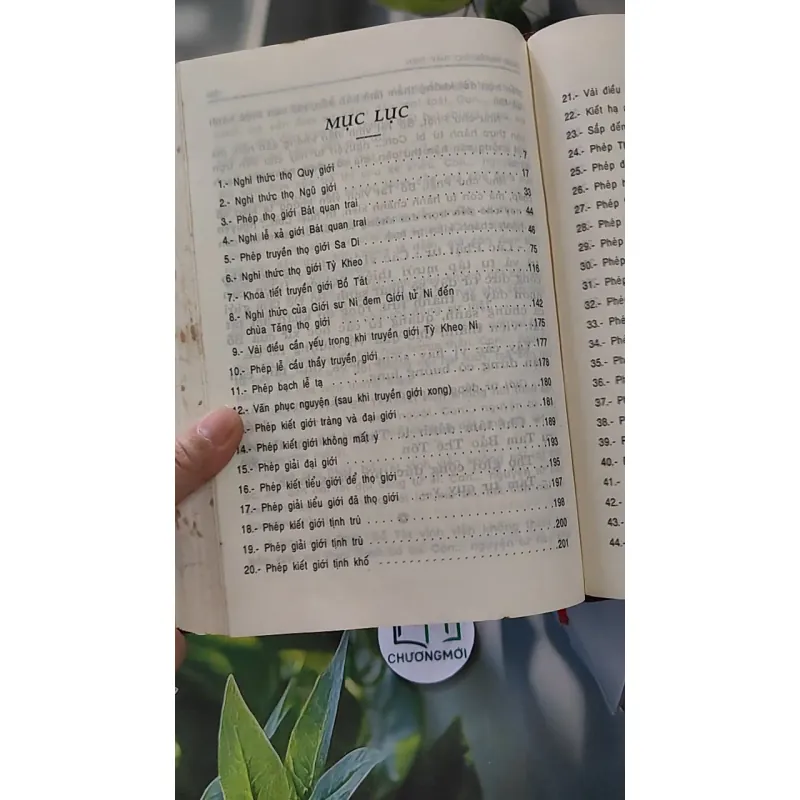 MỤC LỤC
1.- Nghi thức thọ Quy giới 7
2.- Nghi thức thọ Ngũ giới 17
3.- Phép thọ giới Bát quan trai 33
4.- Nghi lễ xả giới Bát quan trai 44
5.- Phép truyền thọ giới Sa Di 46
6.- Nghi thức thọ giới Tỳ Kheo 75
7.- Khoa tiết truyền giới Bồ Tát 116
8.- Nghi thức của Giới sư Ni đem Giới tử Ni đến
chùa Tăng thọ giới 142
9.- Vài điều cần yếu trong khi truyền giới Tỳ Kheo Ni 175
10.- Phép lễ cầu thầy truyền giới 177
11.- Phép bạch lễ tạ 178
12.- Văn phục nguyện (sau khi truyền giới xong) 180
Phép kiết giới tràng và đại giới 181
14.- Phép kiết giới không mất y 189
15.- Phép giải đại giới 193
16.- Phép kiết tiểu giới để thọ giới 195
17.- Phép giải tiểu giới đã thọ giới 197
18.- Phép kiết giới tịnh trù 198
19.- Phép giải giới tịnh trù 200
20.- Phép kiết giới tịnh khố 201
21.- Vài điều
22.- Kiết hạ
23.- Sắp đến
24.- Phép
25.- Phép
26.- Phép
27.- Phép
28.- Phép
29.- Phép
30.- Phép
31.- Phép
32.- Phép
33.- Phép
34.- Phép
35.- Phép
36.- Phép
37.- Phép
38.- Phép
39.- Phép
40.- Phép
41.-
42.-
43.-
44.-
CHƯƠNGMỚI